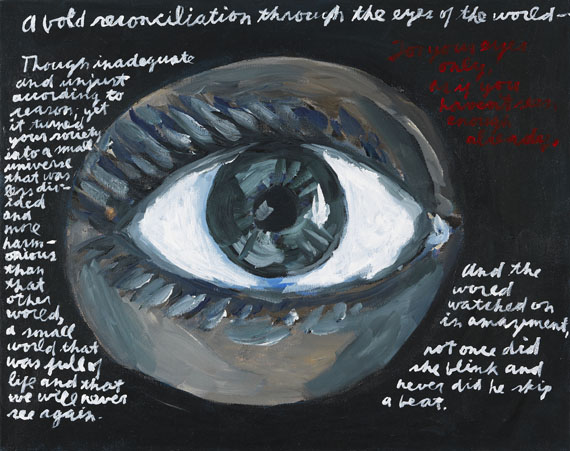 a bold reconciliation through the eyes of the world—
Though inadequate
and unjust
according to
reason; yet
it turned
your society
into a small
universe
that was
less div-
ided
and
more
harm-
onious
than
that
other
world,
a small
world that
was full of
life and that
we will never
see again.
For your eyes
only,
as if you
haven't seen
enough
already.
And the
world
watched on
in amazment,
not once did
she blink and
never did he skip
a beat.